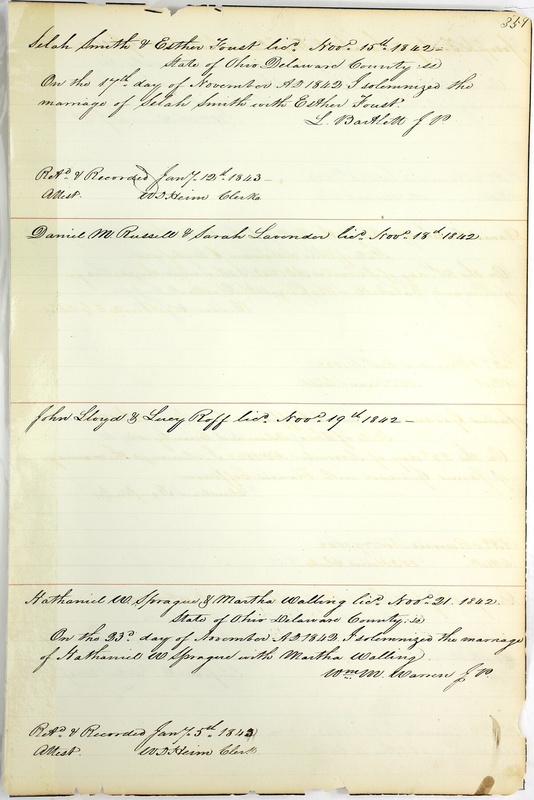 359
Selah Smith & Esther Foust licd. Novr. 15th. 1842 –
State of Ohio Delaware County ss
On the 17th day of November AD 1842 I solemnized the
marriage of Selah Smith with Esther Foust
L. Bartlett J P.
Retd. & Recorded Jany. 12th. 1843 –
Attest. W D Heim Clerk
Daniel M. Russell & Sarah Lavender licd. Novr. 18th 1842
John Lloyd & Lucy Roff licd. Novr. 19th 1842 –
Nathaniel W. Sprague & Martha Walling licd. Novr. 21. 1842.
State of Ohio Delaware County. ss
On the 23d. day of November AD 1842. I solemnized the marriage
of Nathaniel W Sprague with Martha Walling.
Wm. M. Warren J P.
Retd. & Recorded Jany. 5th. 1843
Attest. W D Heim Clerk